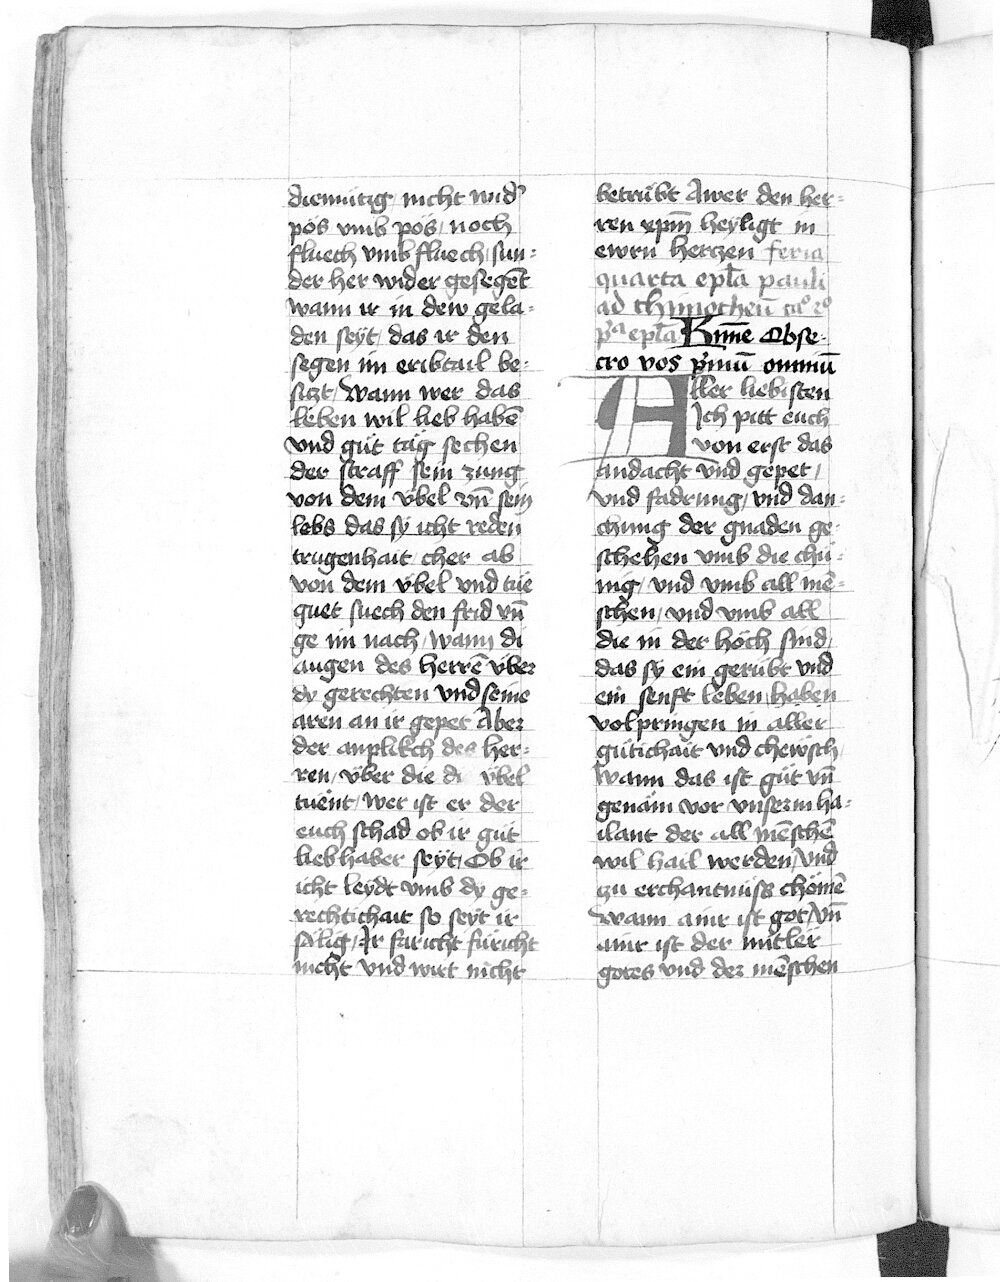 diemütig nicht wid'
pös vmb pös, noch
fluech vmb fluech, sun-
der her wider gesegēt
wann ir in dew gela-
den seÿt, das ir den
segen im eribtail be-
siczt, Wann wer das
leben wil lieb habē
vnd güt täg sechen
der straff sein zung
von dem v̈bel vn̄ sein
lebs das sÿ icht reden
trugenhait, cher ab
von dem v̈bel vnd tüe
guet suech den frid vn̄
ge im nach, wann di
augen des herrē v̈ber
dy gerechten vnd seine
aren an ir gepet Aber
der anplikch des her-
ren, v̈ber die di v̈bel
tüent, wer ist er der
euch schad ob ir güt
lieb haber seÿt, Ob ir
icht leydt vmb dy ge-
rechtichait so seÿt ir
sälig, Ir füricht füricht
nicht vnd wirt nicht
betrübt Awer den her-
ren xpm̄ heyligt in
ewrn herczen feria
quarta epl̄a pauli
ad thymotheū ca° 2°
pᵃ epl̄a Kīme Obse-
cro vos pͥmū omniū
Aller liebisten
Ich pitt euch
von erst das
andacht vnd gepet,
vnd fadrung, vnd dan-
chung der gnaden ge-
schehen vmb die chü-
nig, vnd vmb all mē-
schen, vnd vmb all
die in der höch sind,
das sÿ ein gerübt vnd
ein senft leben haben
volpringen in aller
gütichait vnd chewsch,
wann das ist güt vn̄
genäm vor vnserm ha-
ilant der all mēschē
wil hail werden, vnd
zu erchantnüss chömē
Wann ainr ist got, vn̄
ainr ist der mitler
gotes vnd der mēschen